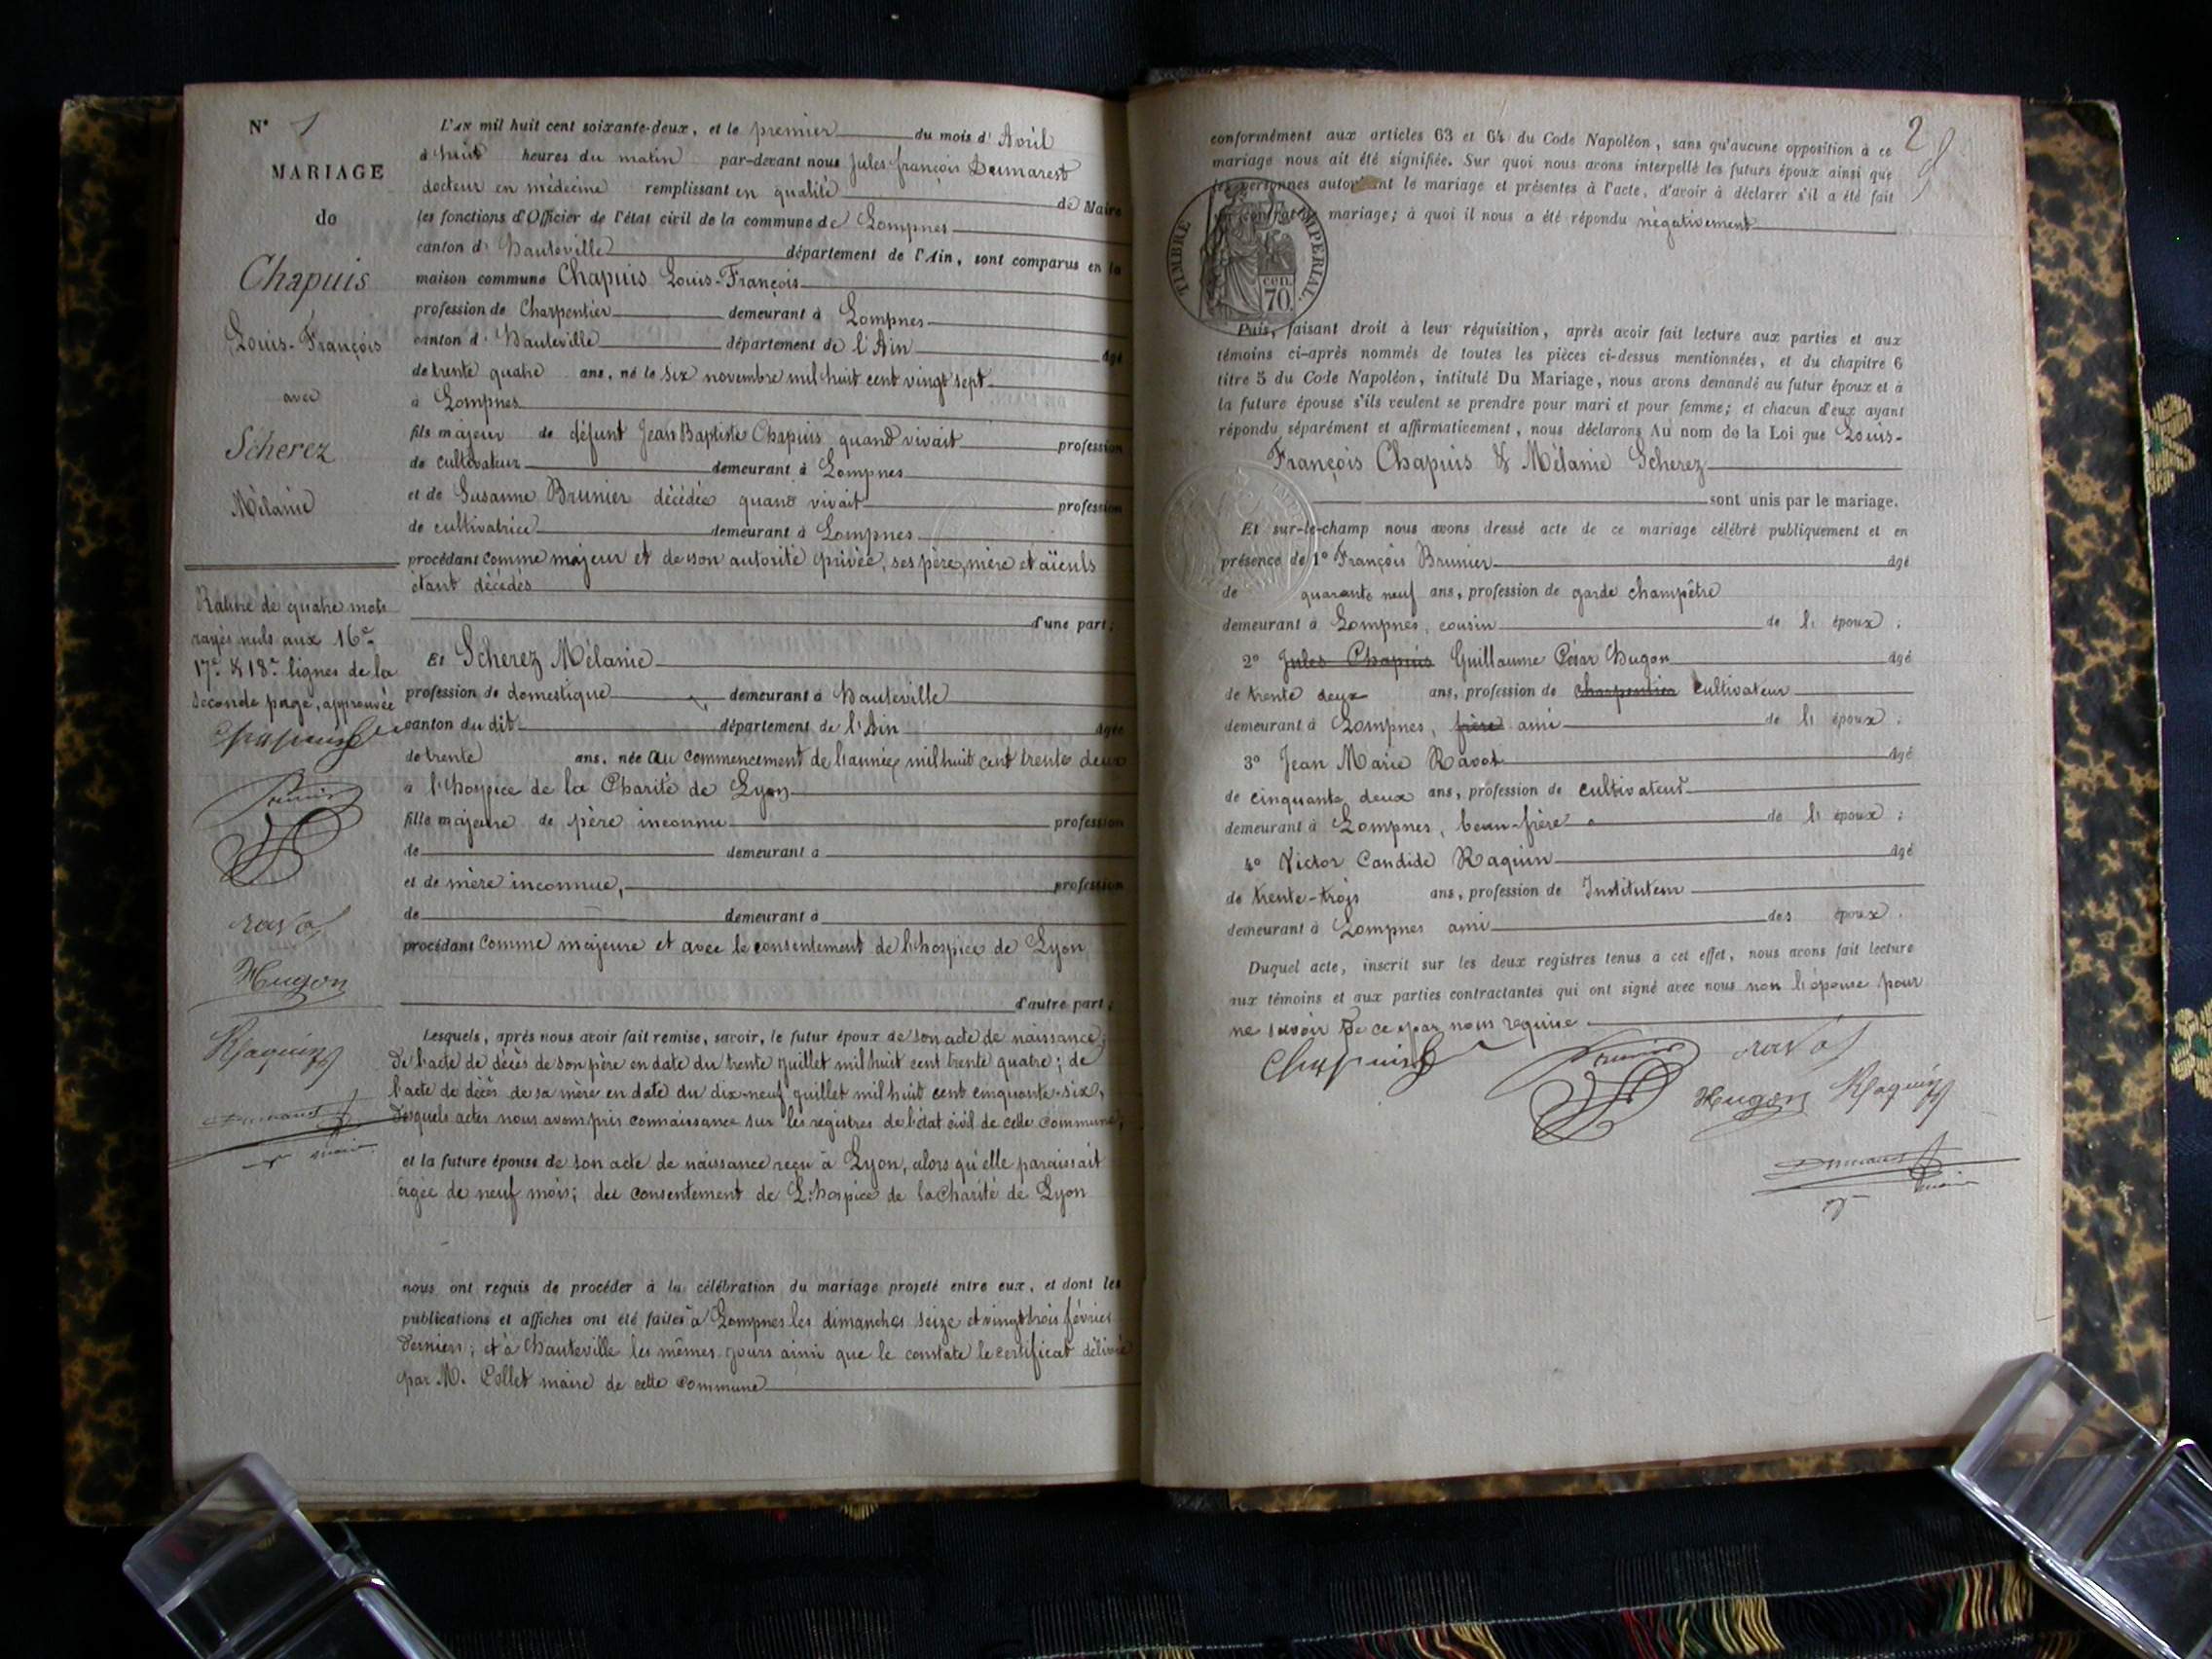 N° 1
MARIAGE
de
Chapuis
Louis-François
avec
Scherez
Mélanie
Rature de quatre mots
rayés nuls aux 16e
17e & 18e lignes de la
seconde page, approuvée
Chapuis
Brunier
ravot
Hugon
Raquin
maire
L'AN mil huit cent soixante-deux, et le premier du mois d' Avril
à huit heures du matin par-devant nous Jules françois Dumarest
docteur en médecine remplissant en qualité de Maire
les fonctions d'Officier de l'état civil de la commune de Lompnes
canton d' Hauteville département de l'Ain, sont comparus en la
maison commune Chapuis Louis-François
profession de Charpentier demeurant à Lompnes
canton d' Hauteville département de l'Ain âgé
de trente quatre ans, né le six novembre mil huit cent vingt sept
à Lompnes
fils majeur de défunt Jean Baptiste Chapuis quand vivait profession
de cultivateur demeurant à Lompnes
et de Susanne Brunier décédée quand vivait profession
de cultivatrice demeurant à Lompnes
procédant comme majeur et de son autorité privée, ses père, mère et aïeuls
étant décédés
d'une part;
Et Scherez Mélanie
profession de domestique demeurant à Hauteville
canton du dit département de l'Ain âgée
de trente ans, née au commencement de l'année mil huit cent trente deux
à l'hospice de la Charité de Lyon
fille majeure de père inconnu profession
de demeurant à
et de mère inconnue, profession
de demeurant à
procédant comme majeure et avec le consentement de l'hospice de Lyon
d'autre part;
Lesquels, après nous avoir fait remise, savoir, le futur époux de son acte de naissance;
de l'acte de décès de son père en date du trente juillet mil huit cent trente quatre; de
l'acte de décès de sa mère en date du dix-neuf juillet mil huit cent cinquante-six,
desquels actes nous avons pris connaissance sur les registres de l'état civil de cette commune;
et la future épouse de son acte de naissance reçu à Lyon, alors qu'elle paraissait
âgée de neuf mois; du consentement de L'hospice de la Charité de Lyon
nous ont requis de procéder à la célébration du mariage projeté entre eux, et dont les
publications et affiches ont été faites à Lompnes les dimanches seize et vingt trois février
derniers; et à Hauteville les mêmes jours ainsi que le constate le certificat délivré
par M. Collet maire de cette commune
2
conformément aux articles 63 et 64 du Code Napoléon, sans qu'aucune opposition à ce
mariage nous ait été signifiée. Sur quoi nous avons interpellé les futurs époux ainsi que
les personnes autorisant le mariage et présentes à l'acte, d'avoir à déclarer s'il a été fait
un contrat de mariage; à quoi il nous a été répondu négativement
TIMBRE IMPERIAL.
cen.
70
Puis, faisant droit à leur réquisition, après avoir fait lecture aux parties et aux
témoins ci-après nommés de toutes les pièces ci-dessus mentionnées, et du chapitre 6
titre 5 du Code Napoléon, intitulé Du Mariage, nous avons demandé au futur époux et à
la future épouse s'ils veulent se prendre pour mari et pour femme; et chacun d'eux ayant
répondu séparément et affirmativement, nous déclarons Au nom de la Loi que Louis-
François Chapuis & Mélanie Scherez
sont unis par le mariage.
Et sur-le-champ nous avons dressé acte de ce mariage célébré publiquement et en
présence de 1° François Brunier âgé
de quarante neuf ans, profession de garde champêtre
demeurant à Lompnes, cousin de l' époux;
2° Jules Chapuis Guillaume César Hugon âgé
de trente deux ans, profession de charpentier cultivateur
demeurant à Lompnes, frère ami de l' époux;
3° Jean Marie Ravot âgé
de cinquante deux ans, profession de cultivateur
demeurant à Lompnes, beau-frère de l' époux;
4° Victor Candide Raquin âgé
de trente-trois ans, profession de Instituteur
demeurant à Lompnes ami des époux.
Duquel acte, inscrit sur les deux registres tenus à cet effet, nous avons fait lecture
aux témoins et aux parties contractantes qui ont signé avec nous non l'épouse pour
ne savoir de ce par nous requise
Chapuis
Brunier
ravot
Hugon
Raquin
maire